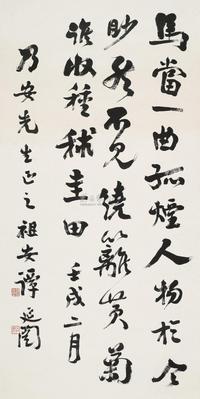 馬當一曲孤煙人物於今
眇然不見繞籬黄菊
誰收種秫圭田 壬戌二月
乃安先生正之 祖安譚延闓